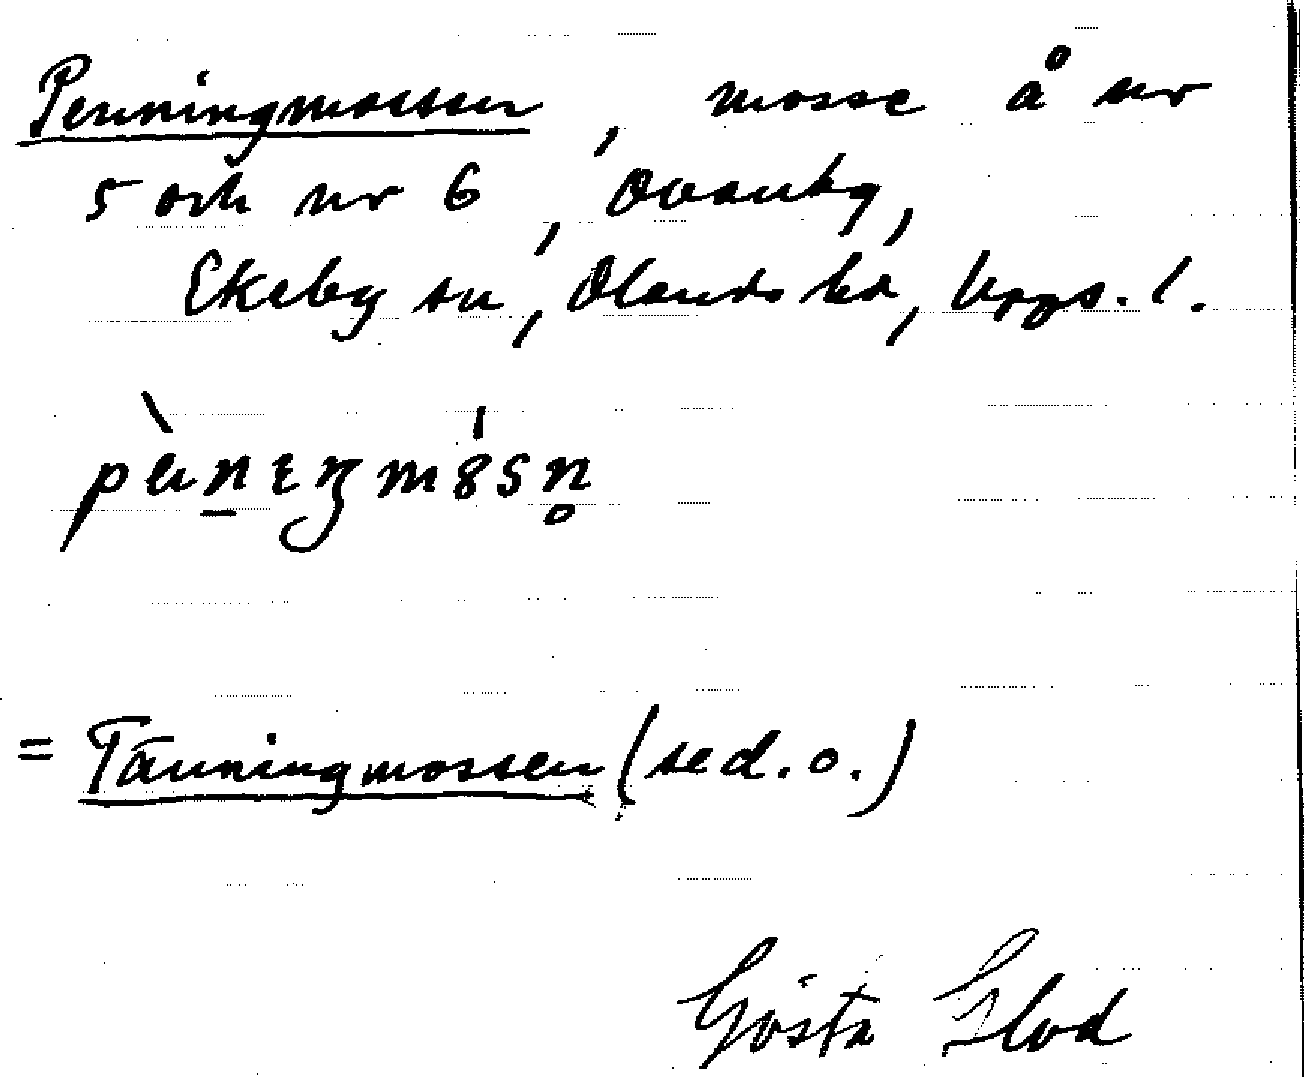 Penningmossen, mosse å nr
5 och nr 6, Ovanby,
Ekeby sn, Olands hd, Upps. l.
= Tänningmossen (se d. o.)
Gösta